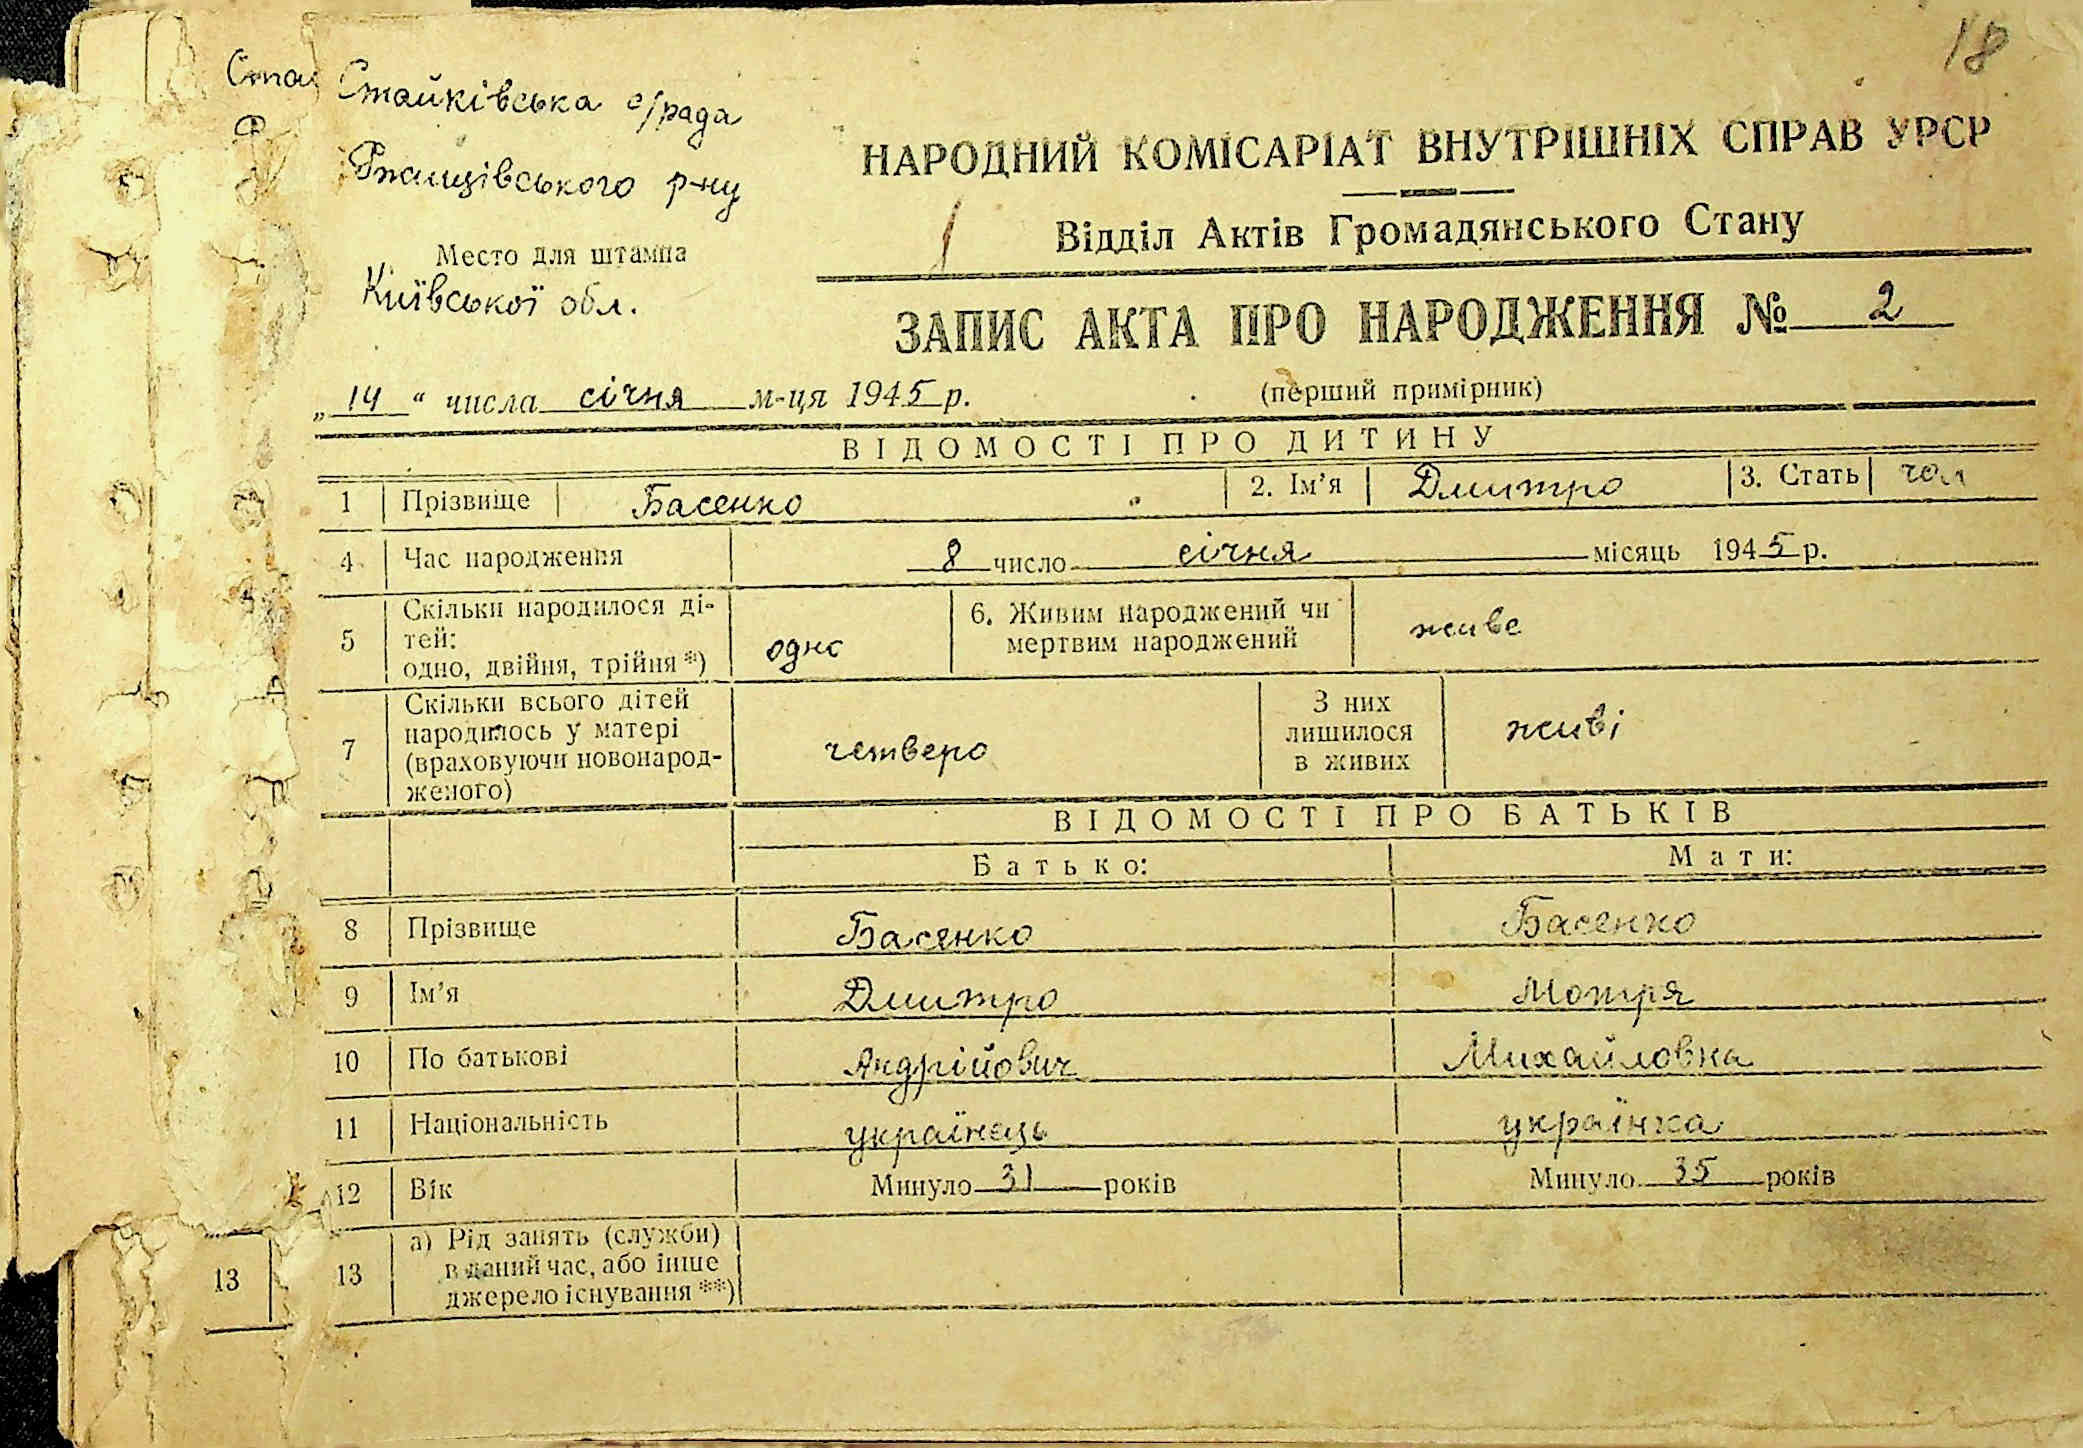 18
Стайківська с/рада
Ржищівського р-ну
Место для штампа
Київської обл.
НАРОДНИЙ КОМІСАРІАТ ВНУТРІШНІХ СПРАВ УРСР
Відділ Актів Громадянського Стану
ЗАПИС АКТА ПРО НАРОДЖЕННЯ № 2
„14“ числа січня м-ця 1945 р. (перший примірник)
ВІДОМОСТІ ПРО ДИТИНУ
1 Прізвище Басенко 2. Ім’я Дмитро 3. Стать чол
4 Час народження 8 число січня місяць 1945 р.
5 Скільки народилося ді-
тей:
одно, двійня, трійня *) одно
6. Живим народжений чи
мертвим народжений живе
7 Скільки всього дітей
народилось у матері
(враховуючи новонарод-
женого) четверо
З них
лишилося
в живих живі
ВІДОМОСТІ ПРО БАТЬКІВ
Батько: Мати:
8 Прізвище Басенко Басенко
9 Ім’я Дмитро Мотря
10 По батькові Андрійович Михайловна
11 Національність українець українка
12 Вік Минуло 31 років Минуло 35 років
13 13 а) Рід занять (служби)
в даний час, або інше
джерело існування **)